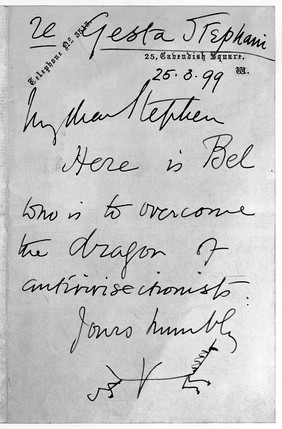 re Gesta Stephani
Telephone Nº
25, Cavendish Square,
W.
25.3.99
My dear Stephen
Here is Bel
who is to overcome
the dragon of
antivivisectionists.
Yours humbly